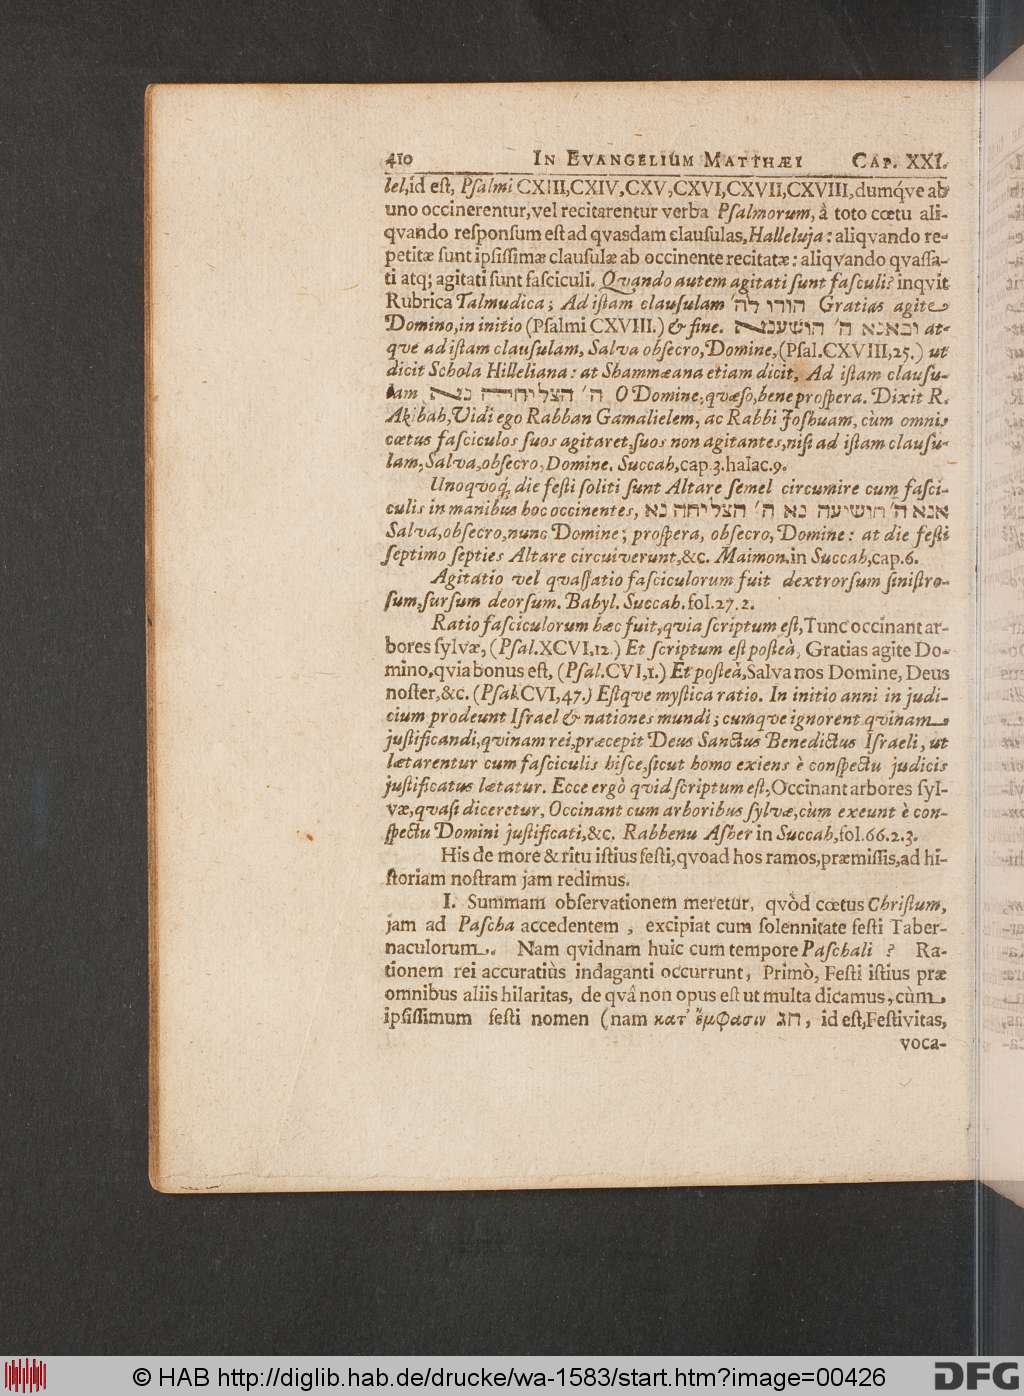 410 IN EVANGELIUM MATTHÆI CAP. XXI.
lel, id eſt, Pſalmi CXIII, CXIV, CXV, CXVI, CXVII, CXVIII, dumq́ve ab
uno occinerentur, vel recitarentur verba Pſalmorum, â toto cœtu ali-
qvando reſponſum eſt ad qvasdam clauſulas, Halleluja: aliqvando re-
petitæ ſunt ipſiſſimæ clauſulæ ab occinente recitatæ: aliqvando qvaſſa-
ti atq; agitati ſunt faſciculi. Qvando autem agitati ſunt faſculi? inqvit
Rubrica Talmudica; Ad iſtam clauſulam הודו לה׳ Gratias agite
Domino, in initio (Pſalmi CXVIII.) & fine. ובאנא ה׳ הושענא at-
qve ad iſtam clauſulam, Salva obſecro, Domine, (Pſal. CXVIII, 25.) ut
dicit Schola Hilleliana: at Shammæana etiam dicit, Ad iſtam clauſu-
lam ה׳ הצליחה נא O Domine, qvæſo, bene proſpera. Dixit R.
Akibah, Vidi ego Rabban Gamalielem, ac Rabbi Joſhuam, cùm omnis
cœtus faſciculos ſuos agitaret, ſuos non agitantes, niſi ad iſtam clauſu-
lam, Salva, obſecro, Domine. Succah, cap. 3. halac. 9.
Unoqvoq́; die feſti ſoliti ſunt Altare ſemel circumire cum faſci-
culis in manibus hoc occinentes, אנא ה׳ הושיעה נא ה׳ הצליחה נא
Salva, obſecro, nunc Domine; proſpera, obſecro, Domine: at die feſti
ſeptimo ſepties Altare circuiverunt, &c. Maimon. in Succah, cap. 6.
Agitatio vel qvaſſatio faſciculorum fuit dextrorſum ſiniſtro-
ſum, ſurſum deorſum. Babyl. Succah. fol. 27. 2.
Ratio faſciculorum hæc fuit, qvia ſcriptum eſt, Tunc occinant ar-
bores ſylvæ, (Pſal. XCVI, 12.) Et ſcriptum eſt poſteà, Gratias agite Do-
mino, qvia bonus eſt, (Pſal. CVI, 1.) Et poſteà, Salva nos Domine, Deus
noſter, &c. (Pſal. CVI, 47.) Eſtqve myſtica ratio. In initio anni in judi-
cium prodeunt Iſrael & nationes mundi; cumqve ignorent qvinam
juſtificandi, qvinam rei, præcepit Deus Sanctus Benedictus Iſraeli, ut
lætarentur cum faſciculis hiſce, ſicut homo exiens è conſpectu judicis
juſtificatus lætatur. Ecce ergò qvid ſcriptum eſt, Occinant arbores ſyl-
væ, qvaſi diceretur, Occinant cum arboribus ſylvæ, cùm exeunt è con-
ſpectu Domini juſtificati, &c. Rabbenu Aſher in Succah, fol. 66. 2. 3.
His de more & ritu iſtius feſti, qvoad hos ramos, præmiſſis, ad hi-
ſtoriam noſtram jam redimus.
I. Summam obſervationem meretur, qvòd cœtus Chriſtum,
jam ad Paſcha accedentem, excipiat cum ſolennitate feſti Taber-
naculorum. Nam qvidnam huic cum tempore Paſchali? Ra-
tionem rei accuratiùs indaganti occurrunt, Primò, Feſti iſtius præ
omnibus aliis hilaritas, de qvâ non opus eſt ut multa dicamus, cùm
ipſiſſimum feſti nomen (nam κατ᾽ ἔμφασιν חג, id eſt, Feſtivitas,
voca-
© HAB http://diglib.hab.de/drucke/wa-1583/start.htm?image=00426
DFG